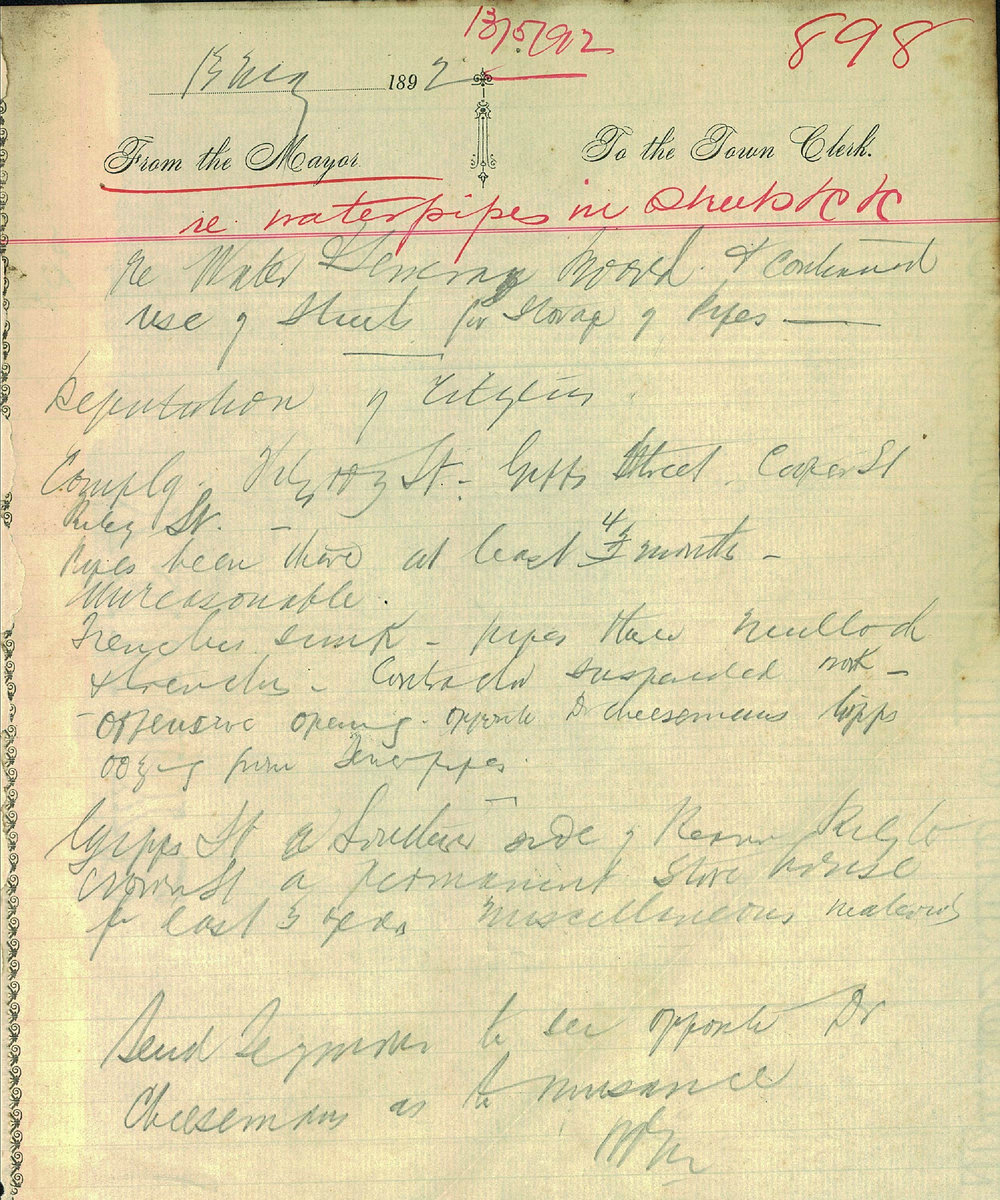 13/5/92
898
13 May 1892
From the Mayor
To the Town Clerk.
re waterpipes in Streets
re Water & Sewerage Board & continued
use of Streets for Storage of Pipes —
Deputation of Citizens
Fitzroy St. – Gipps Street Cooper St
Riley St. –
Pipes been there at least months –
Unreasonable.
Trenches sunk – pipes there
& trenches – Contractor suspended work –
– offensive opening – opposite Dr Cheesemans Gipps
oozing from Sewer pipes.
Gipps St side of Reserve Riley to
Crown St a permanent Store house
for last 3 years miscellaneous materials
Send Seymour to see opposite Dr
Cheesemans as to nuisance